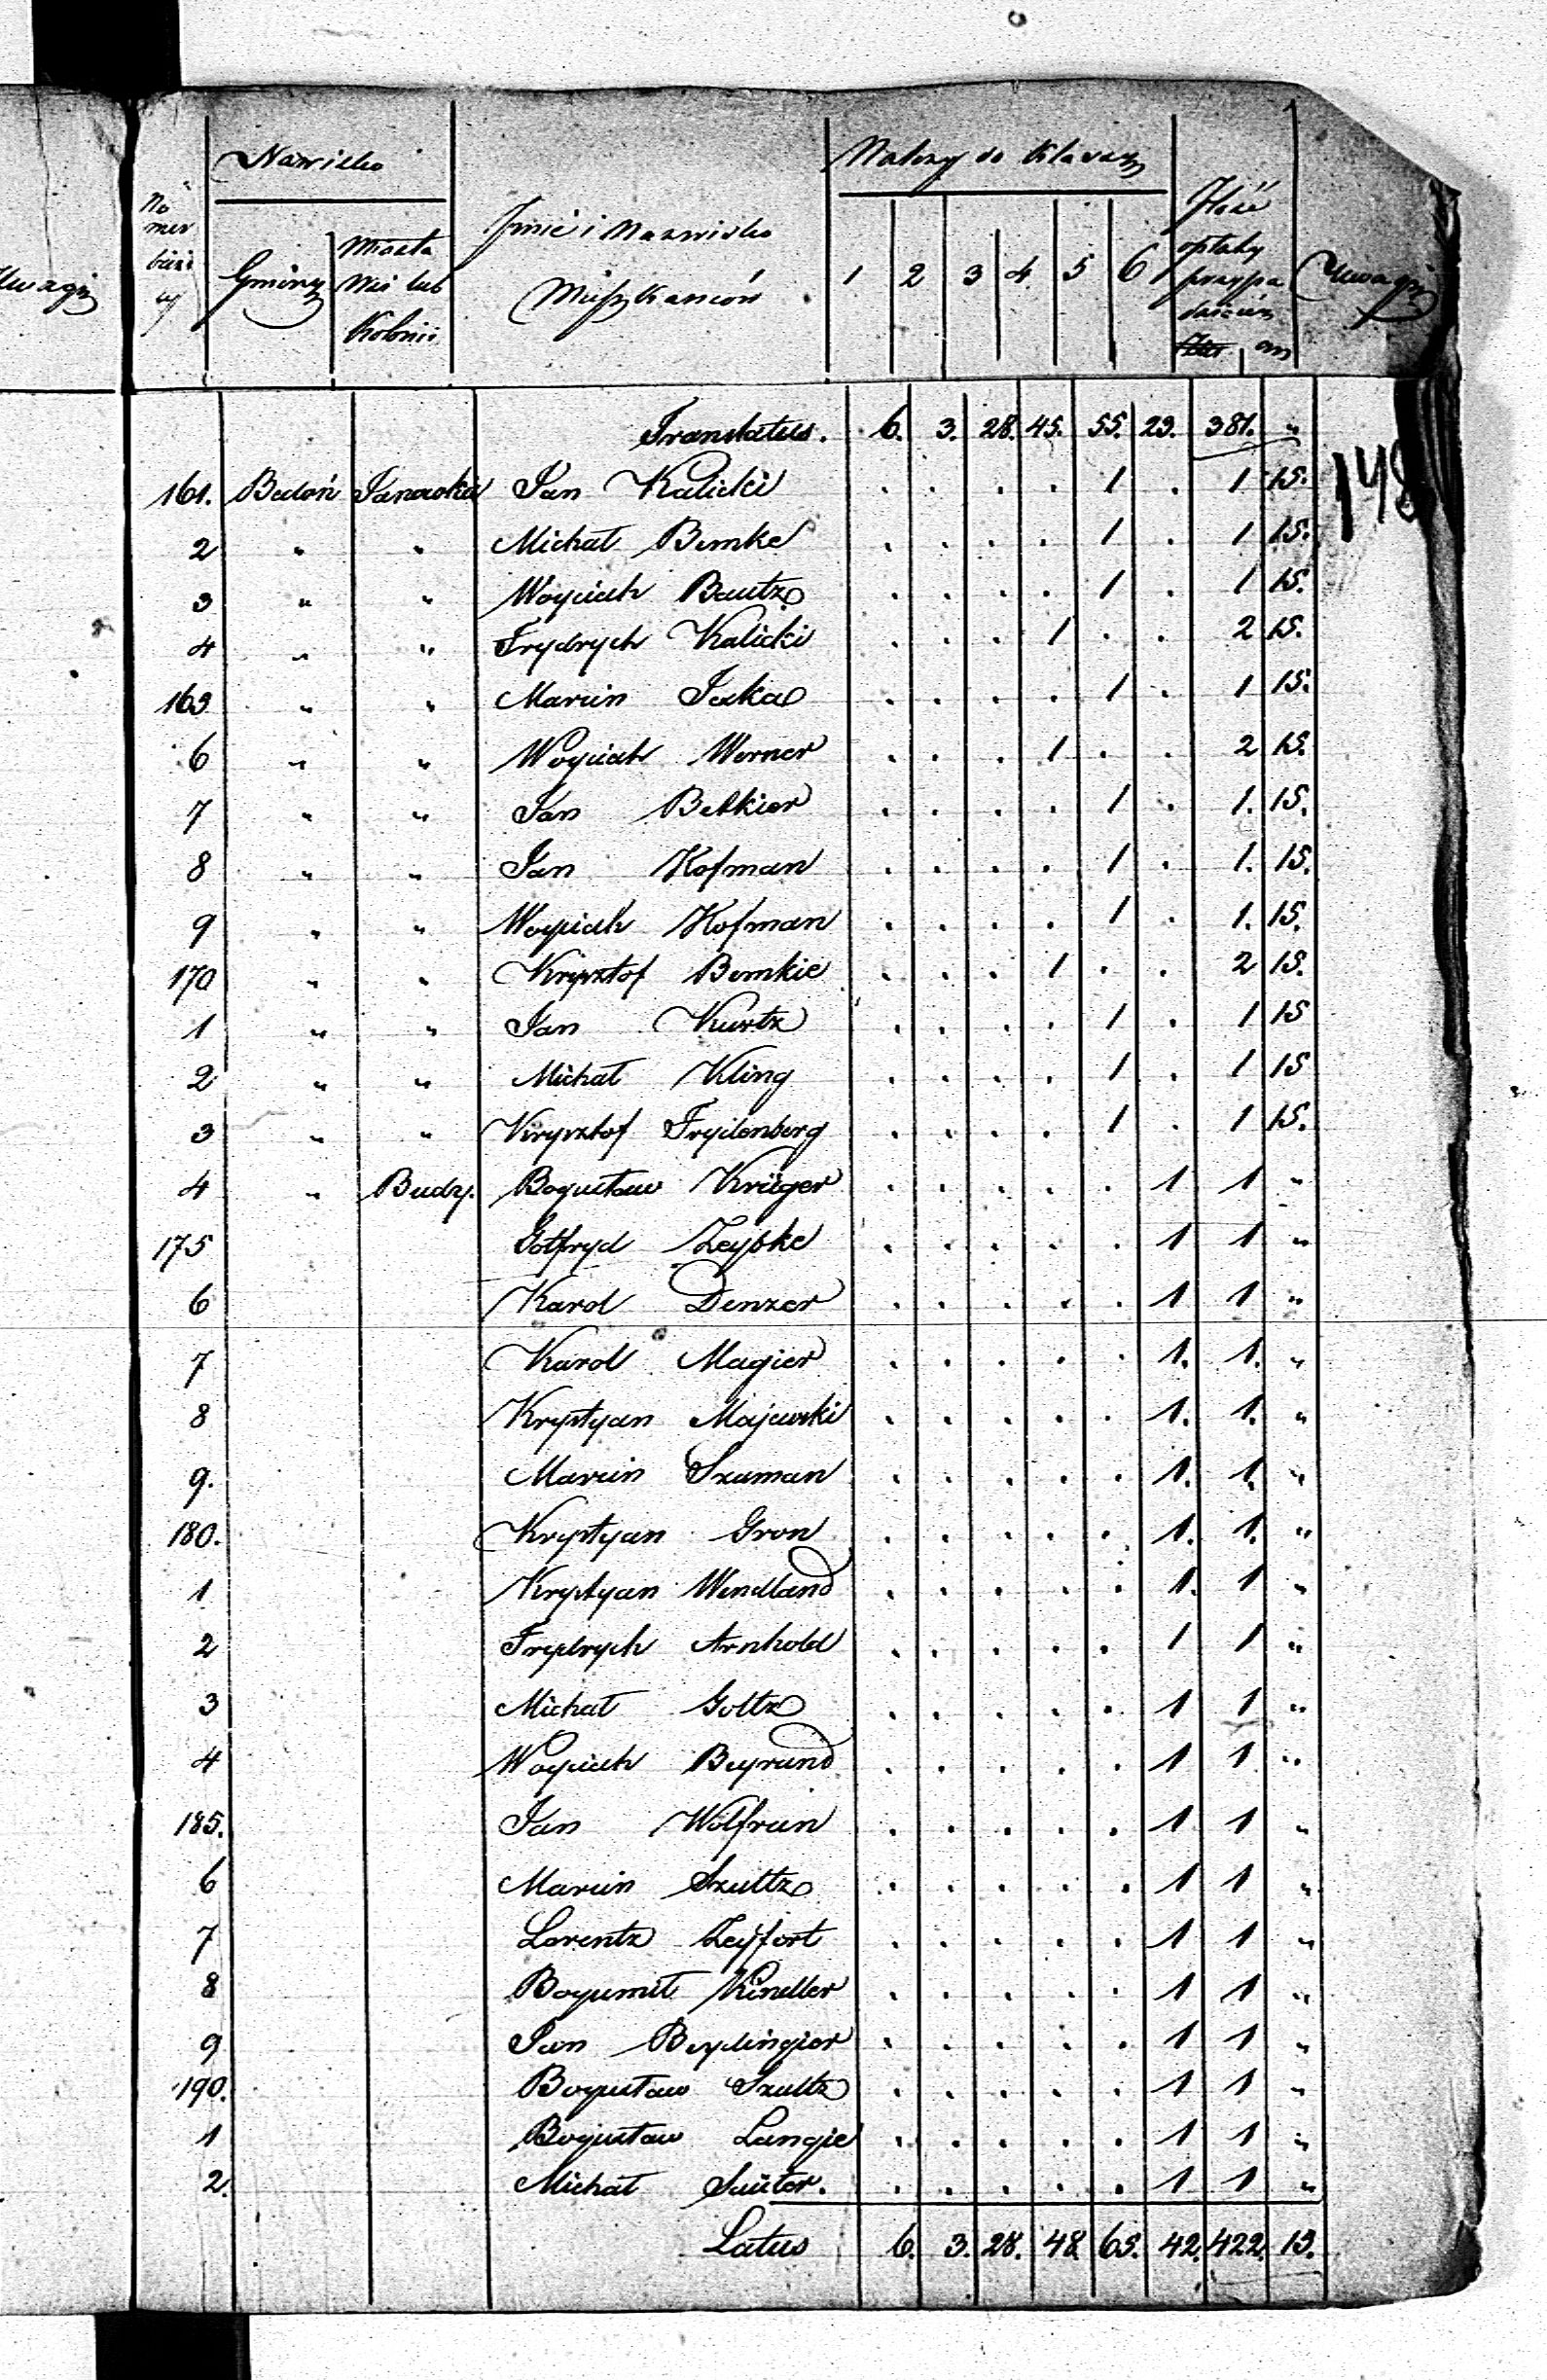 Uwagi
Nazwisko
Należy do Klassy
No
mer
bieżą
cy
Gminy
Miasta
Wsi lub
Kolonii
Jmie i Nazwisko
Mieszkańców
1 2 3 4 5 6
Ilość
opłaty
przypa
daiącéy
Uwagi
Translatus. 6. 3. 28. 45. 55. 23. 381. "
148
161. Bedoń Janowka Jan Kalicki . . . . 1 . 1 15.
2 " " Michał Bemke . . . . 1 . 1 15.
3 " " Woyciech Bautz . . . . 1 . 1 15.
4 " " Frydrych Kalicki . . . 1 . . 2 15.
165 " " Marcin Jeska . . . . 1 . 1 15.
6 " " Woyciech Werner . . . 1 . . 2 15.
7 " " Jan Betkier . . . . 1 . 1. 15.
8 " " Jan Hofman . . . . 1 . 1. 15.
9 " " Woyciech Hofman . . . . 1 . 1. 15.
170 " " Krysztof Bemkie . . . 1 . . 2 15.
1 " " Jan Kurtz . . . . 1 . 1 15
2 " " Michał Kling . . . . 1 . 1 15
3 " " Krysztof Frydenberg . . . . 1 . 1 15.
4 " Budzy. Bogusław Krüger . . . . . 1 1 "
175 Gotfryd Zeybke . . . . . 1 1 "
6 Karol Denzer . . . . . 1 1 "
7 Karol Magier . . . . . 1. 1. "
8 Krystyan Majewski . . . . . 1. 1. "
9. Marcin Szuman . . . . . 1. 1. "
180. Krystyan Gron . . . . . 1. 1. "
1 Krystyan Wendland . . . . . 1. 1 "
2 Frydrych Arnhold . . . . . 1 1 "
3 Michał Goltz . . . . . 1 1 "
4 Woyciech Beyrund . . . . . 1 1 "
185. Jan Wolfrun . . . . . 1 1 "
6 Marcin Szultz . . . . . 1 1 "
7 Lorentz Zeyfort . . . . . 1 1 "
8 Bogumił Kindler . . . . . 1 1 "
9 Jan Beydingier . . . . . 1 1 "
190. Bogusław Szultz . . . . . 1 1 "
1 Bogusław Langie . . . . . 1 1 "
2. Michał Suiter. . . . . . 1 1 "
Latus 6. 3. 28. 48 65. 42. 422. 15.